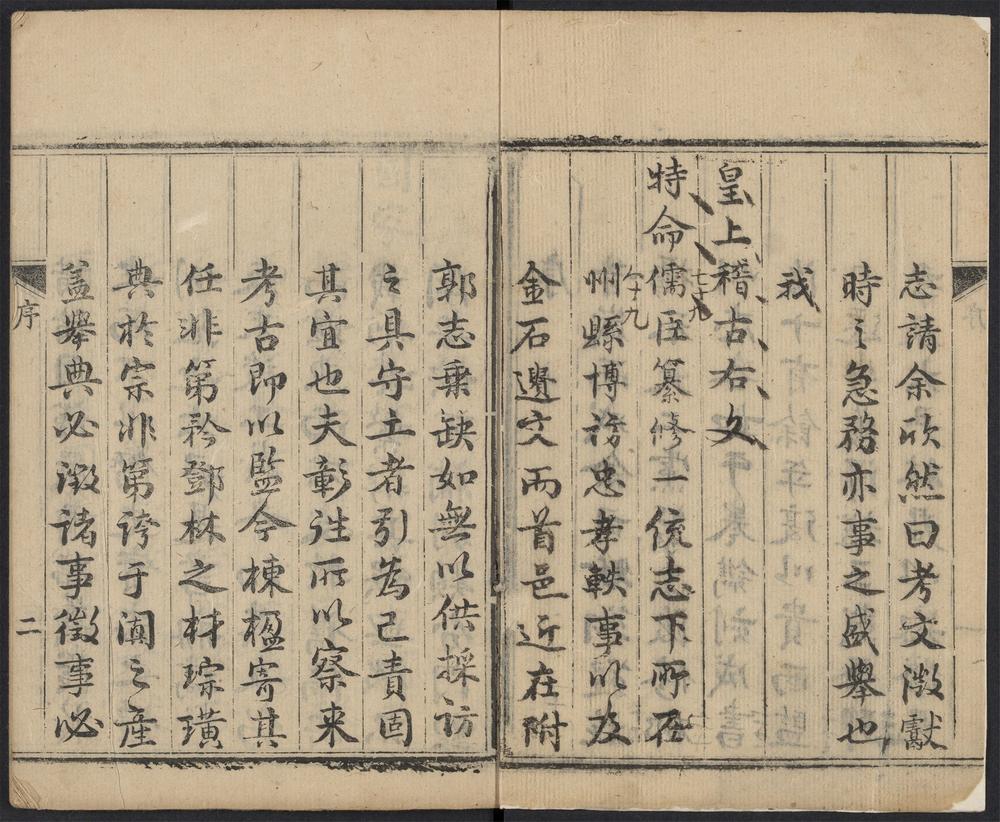 志請余欣然曰考文徵獻
時之急務亦事之盛舉也
我
皇上稽古右文
特命儒臣纂修一統志下所在
州縣博訪忠孝軼事以及
金石遺文而首邑近在附
郭志乗缺如無以供採訪
之具守土者引為己責固
其宜也夫彰徃所以察来
考古即以監今棟楹寄其
任非第矜鄧林之材琮璜
典於宗非第誇于闐之産
盖舉典必徵諸事徵事必
序
二